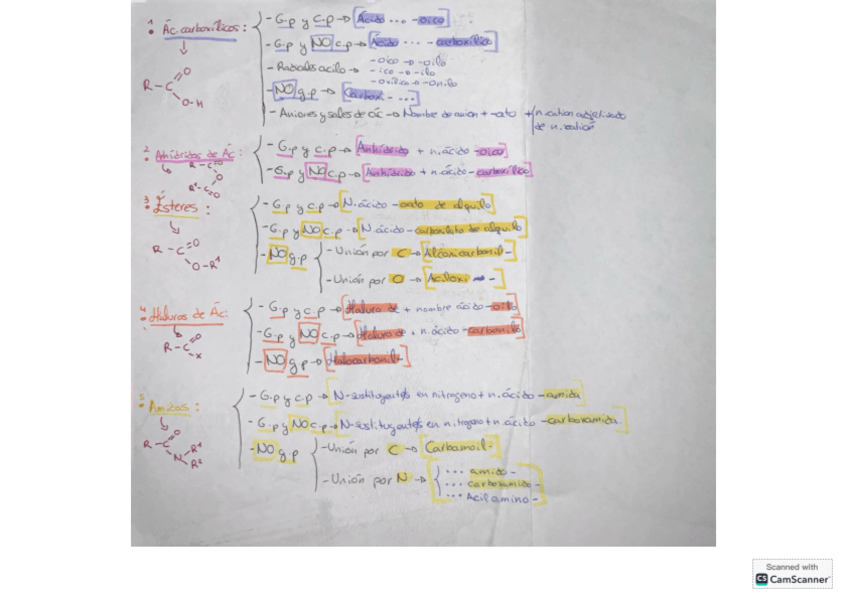 1 Ác. carboxílicos:
- G.p y c.p → Ácido ... -oico
- G.p y NO c.p → Ácido ... -carboxílico
- Radicales acilo → -oico → -oilo
-ico → -ilo
-oxílico → -onilo
- NO g.p → Carboxi- ...
- Aniones y sales de ác → Nombre de anion + -ato + n.cation
de n.cation
R-C
O
O-H
2 Anhídridos de Ác:
- G.p y c.p → Anhídrido + n.ácido -oico
- G.p y NO c.p → Anhídrido + n.ácido -carboxílico
R-C=O
O
R'-C=O
3 Ésteres:
- G.p y c.p → N.ácido -oato de alquilo
- G.p y NO c.p → N.ácido -carboxilato de alquilo
- NO g.p
- Unión por C → Alcoxicarbonil-
- Unión por O → Aciloxi -
R-C=O
O-R'
4 Haluros de Ác:
- G.p y c.p → Haluro de + nombre ácido -oilo
- G.p y NO c.p → Haluro de + n.ácido -carbonilo
- NO g.p → Halocarbonil-
R-C=O
x
5 Amidas:
- G.p y c.p → N-sustituyentes en nitrogeno + n.ácido -amida
- G.p y NO c.p → N-sustituyentes en nitrogeno + n.ácido -carboxamida
- NO g.p
- Unión por C → Carbamoil-
- Unión por N →
... amido -
... carboxamido -
... Acil amino -
R-C=O
N-R'
R²
Scanned with
CS CamScanner